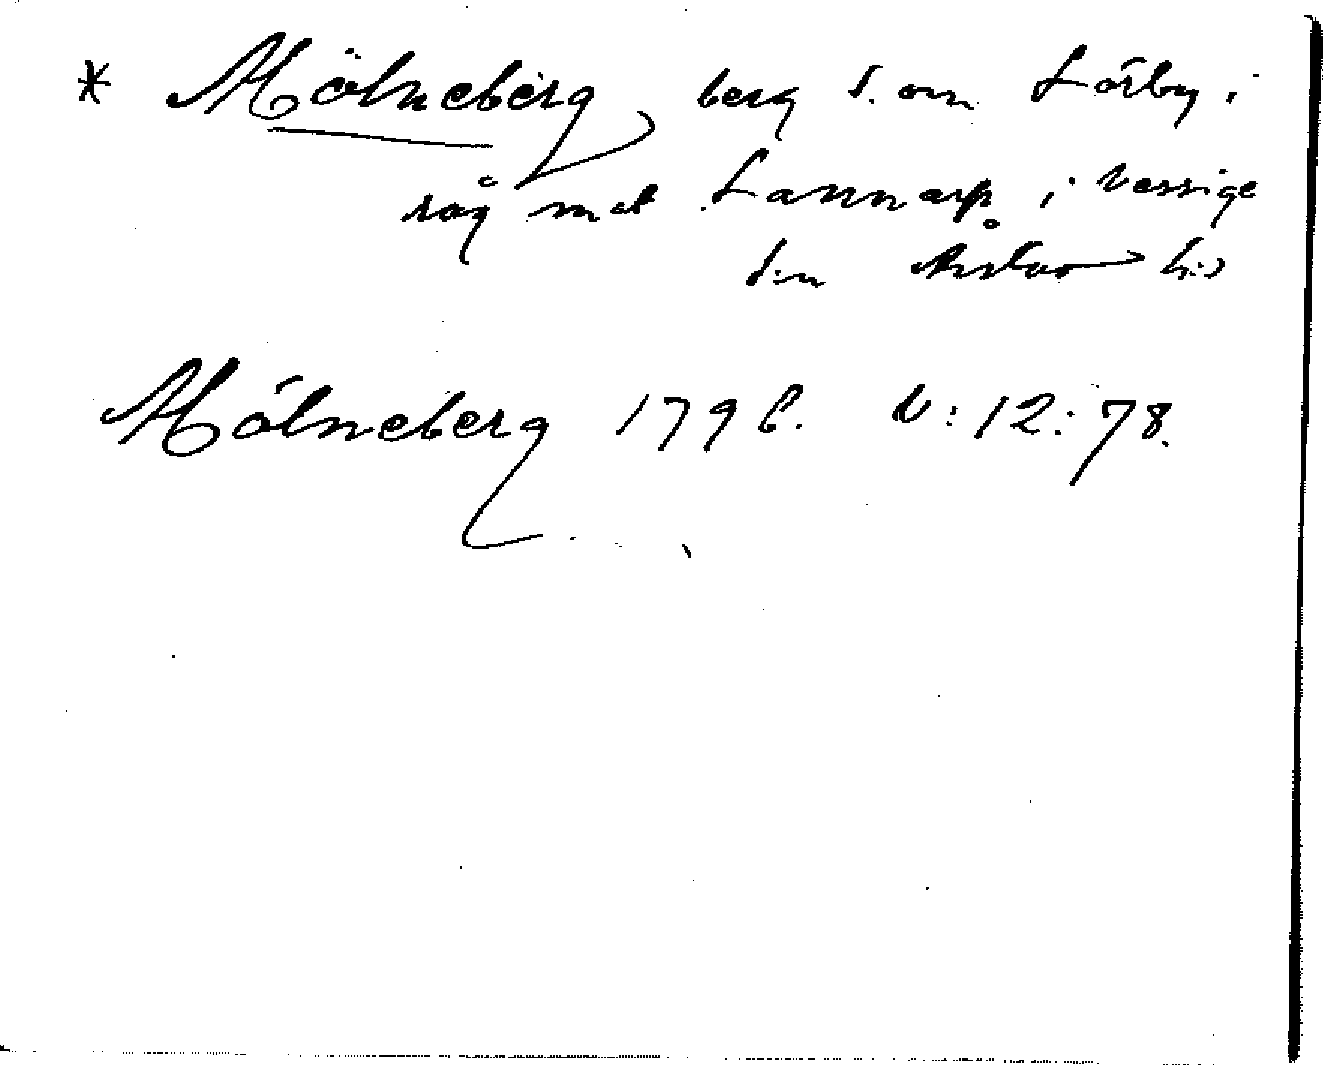 * Mölneberg, berg S. om Lörby i
råg mot Lannarp i Vessige
Årstad
Mölneberg 1796. V:12:78.